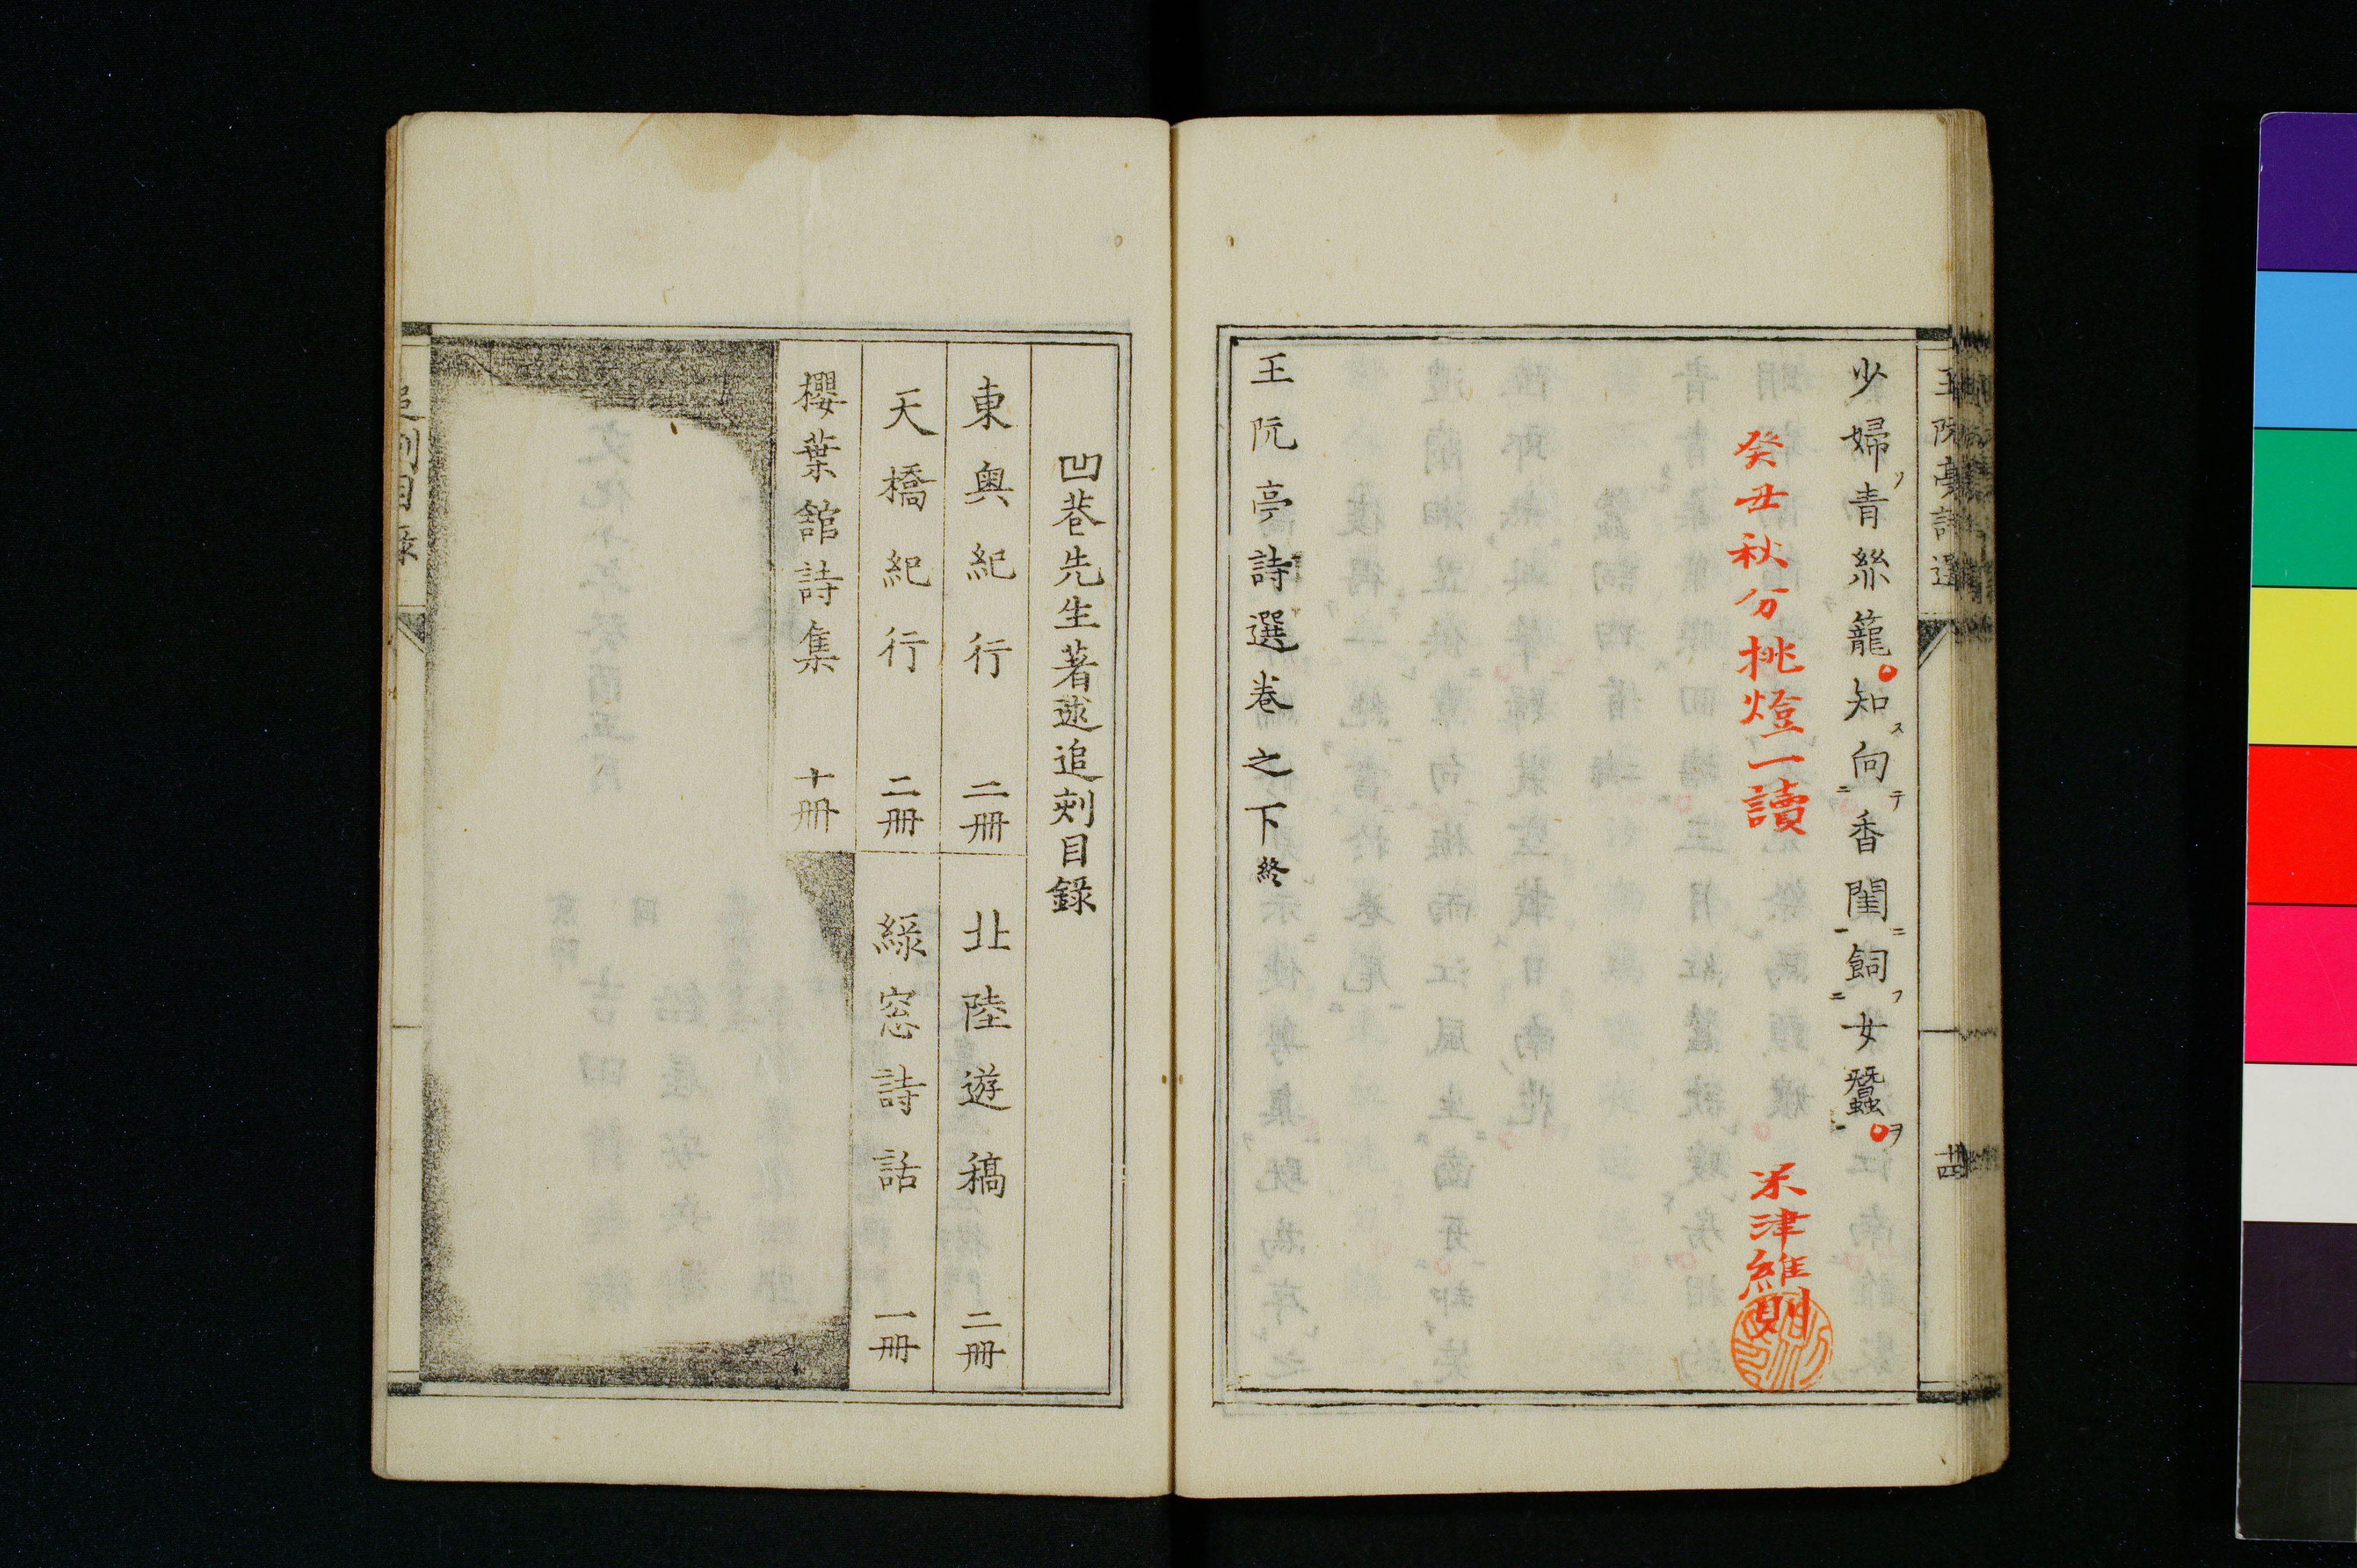 王阮亭詩選
少婦青絲籠知向香閨飼女蠶
癸丑秋分挑燈一讀
米津維則
王阮亭詩選卷之下終
十四
凹巷先生著述追刻目錄
東奧紀行 二冊
北陸遊稿 二冊
天橋紀行 二冊
綠窓詩話 一冊
櫻葉館詩集 十冊
追刻目錄